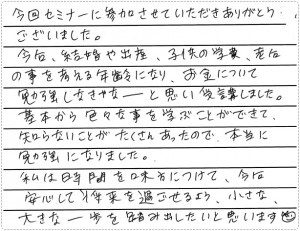 今回セミナーに参加させていただきありがとう
ございました。
今後、結婚や出産、子供の学費、老后
の事を考える年齢になり、お金について
勉強しなきゃなーと思い受講しました。
基本から色々な事を学ぶことができて、
知らないことがたくさんあったので、本当に
勉強になりました。
私は時間を味方につけて、今后
安心して将来を過ごせるよう、小さな、
大きな一歩を踏み出したいと思います